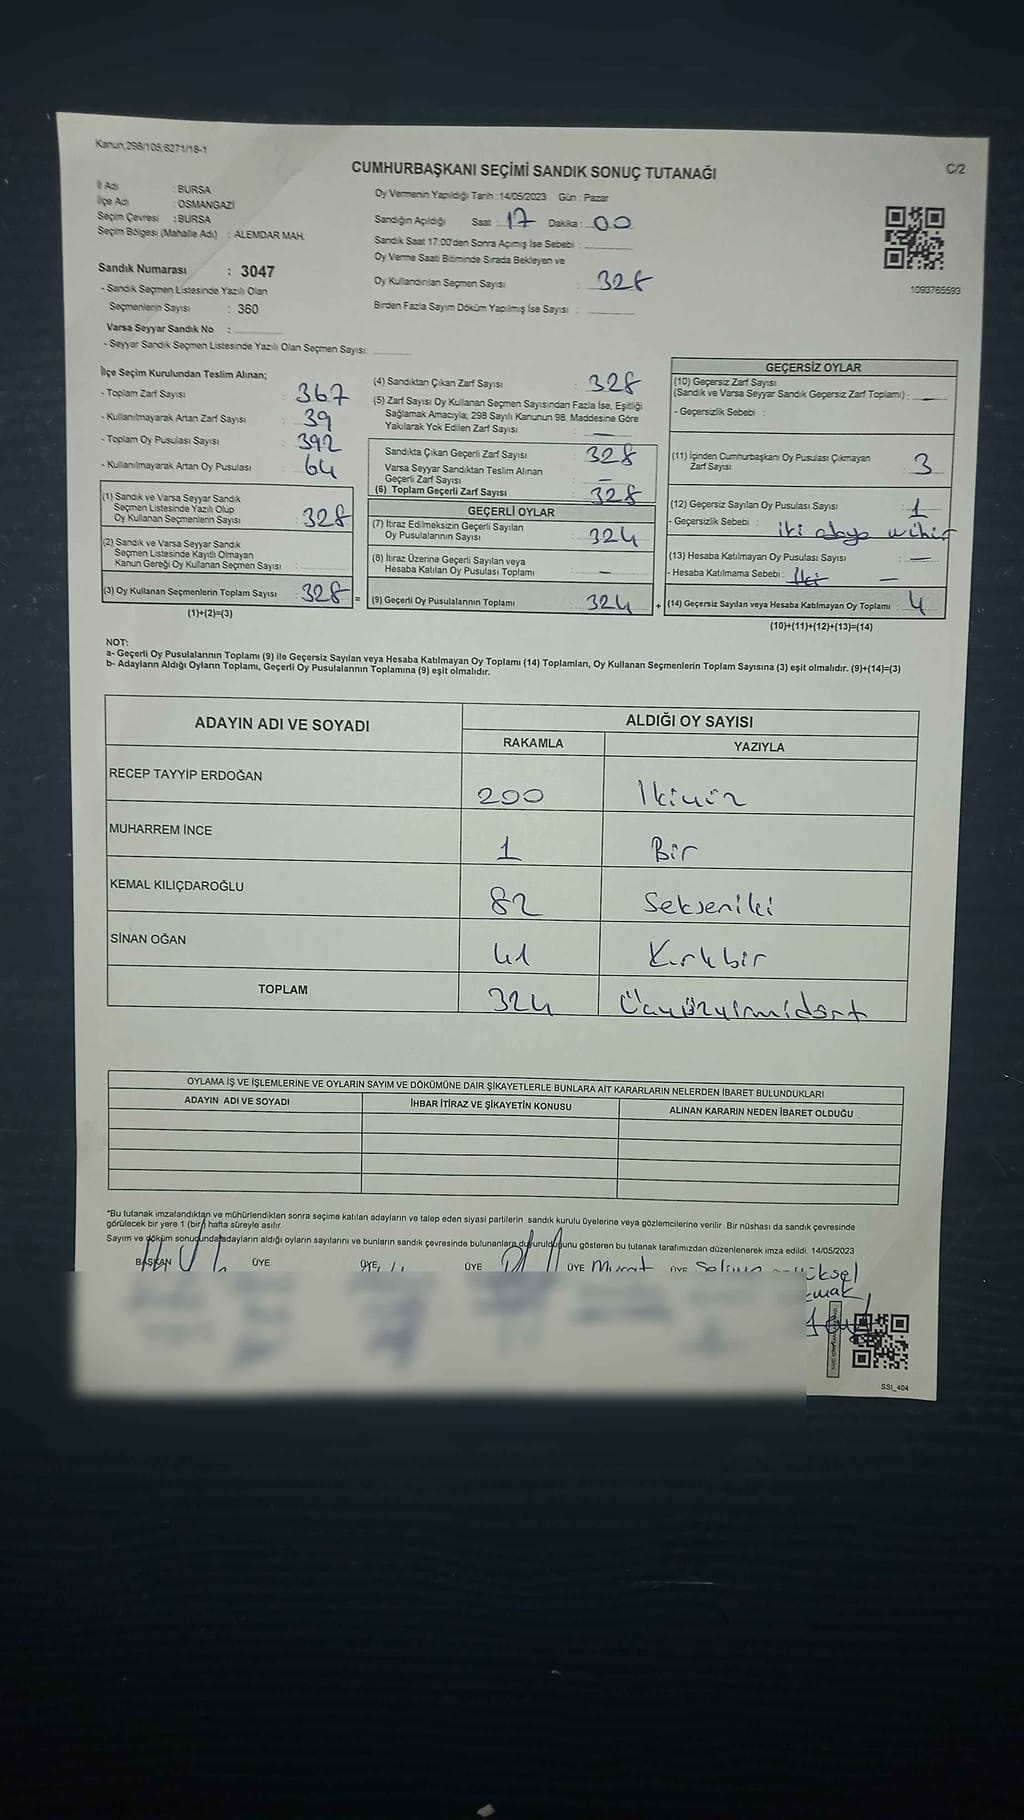 Kanun,298/105;6271/18-1
CUMHURBAŞKANI SEÇİMİ SANDIK SONUÇ TUTANAĞI
C/2
İl Adı : BURSA
İlçe Adı : OSMANGAZİ
Seçim Çevresi : BURSA
Seçim Bölgesi (Mahalle Adı) : ALEMDAR MAH.
Sandık Numarası : 3047
- Sandık Seçmen Listesinde Yazılı Olan
Seçmenlerin Sayısı : 360
Varsa Seyyar Sandık No :
- Seyyar Sandık Seçmen Listesinde Yazılı Olan Seçmen Sayısı:
Oy Vermenin Yapıldığı Tarih : 14/05/2023 Gün : Pazar
Sandığın Açıldığı Saat : 17 Dakika : 00
Sandık Saat 17:00'den Sonra Açılmış İse Sebebi :
Oy Verme Saati Bitiminde Sırada Bekleyen ve
Oy Kullandırılan Seçmen Sayısı : 328
Birden Fazla Sayım Döküm Yapılmış İse Sayısı :
1093765593
İlçe Seçim Kurulundan Teslim Alınan;
- Toplam Zarf Sayısı : 367
- Kullanılmayarak Artan Zarf Sayısı : 39
- Toplam Oy Pusulası Sayısı : 392
- Kullanılmayarak Artan Oy Pusulası : 64
(1) Sandık ve Varsa Seyyar Sandık
Seçmen Listesinde Yazılı Olup
Oy Kullanan Seçmenlerin Sayısı : 328
(2) Sandık ve Varsa Seyyar Sandık
Seçmen Listesinde Kayıtlı Olmayan
Kanun Gereği Oy Kullanan Seçmen Sayısı :
(3) Oy Kullanan Seçmenlerin Toplam Sayısı : 328 =
(1)+(2)=(3)
(4) Sandıktan Çıkan Zarf Sayısı : 328
(5) Zarf Sayısı Oy Kullanan Seçmen Sayısından Fazla İse, Eşitliği
Sağlamak Amacıyla, 298 Sayılı Kanunun 98. Maddesine Göre
Yakılarak Yok Edilen Zarf Sayısı : —
Sandıkta Çıkan Geçerli Zarf Sayısı : 328
Varsa Seyyar Sandıktan Teslim Alınan
Geçerli Zarf Sayısı : —
(6) Toplam Geçerli Zarf Sayısı : 328
GEÇERLİ OYLAR
(7) İtiraz Edilmeksizin Geçerli Sayılan
Oy Pusulalarının Sayısı : 324
(8) İtiraz Üzerine Geçerli Sayılan veya
Hesaba Katılan Oy Pusulası Toplamı : —
(9) Geçerli Oy Pusulalarının Toplamı : 324 +
GEÇERSİZ OYLAR
(10) Geçersiz Zarf Sayısı
(Sandık ve Varsa Seyyar Sandık Geçersiz Zarf Toplamı) : —
- Geçersizlik Sebebi :
(11) İçinden Cumhurbaşkanı Oy Pusulası Çıkmayan
Zarf Sayısı : 3
(12) Geçersiz Sayılan Oy Pusulası Sayısı : 1
- Geçersizlik Sebebi : iki adaya mühür
(13) Hesaba Katılmayan Oy Pusulası Sayısı : —
- Hesaba Katılmama Sebebi : —
(14) Geçersiz Sayılan veya Hesaba Katılmayan Oy Toplamı : 4
(10)+(11)+(12)+(13)=(14)
NOT:
a- Geçerli Oy Pusulalarının Toplamı (9) ile Geçersiz Sayılan veya Hesaba Katılmayan Oy Toplamı (14) Toplamları, Oy Kullanan Seçmenlerin Toplam Sayısına (3) eşit olmalıdır. (9)+(14)=(3)
b- Adayların Aldığı Oyların Toplamı, Geçerli Oy Pusulalarının Toplamına (9) eşit olmalıdır.
ADAYIN ADI VE SOYADI ALDIĞI OY SAYISI
RAKAMLA YAZIYLA
RECEP TAYYİP ERDOĞAN 200 İkiyüz
MUHARREM İNCE 1 Bir
KEMAL KILIÇDAROĞLU 82 Sekseniki
SİNAN OĞAN 41 Kırkbir
TOPLAM 324 Üçyüzyirmidört
OYLAMA İŞ VE İŞLEMLERİNE VE OYLARIN SAYIM VE DÖKÜMÜNE DAİR ŞİKAYETLERLE BUNLARA AİT KARARLARIN NELERDEN İBARET BULUNDUKLARI
ADAYIN ADI VE SOYADI İHBAR İTİRAZ VE ŞİKAYETİN KONUSU ALINAN KARARIN NEDEN İBARET OLDUĞU
*Bu tutanak imzalandıktan ve mühürlendikten sonra seçime katılan adayların ve talep eden siyasi partilerin sandık kurulu üyelerine veya gözlemcilerine verilir. Bir nüshası da sandık çevresinde
görülecek bir yere 1 (bir) hafta süreyle asılır.
Sayım ve döküm sonucunda adayların aldığı oyların sayılarını ve bunların sandık çevresinde bulunanlara duyurulduğunu gösteren bu tutanak tarafımızdan düzenlenerek imza edildi. 14/05/2023
BAŞKAN ÜYE ÜYE ÜYE ÜYE Murat ÜYE
SSI_404